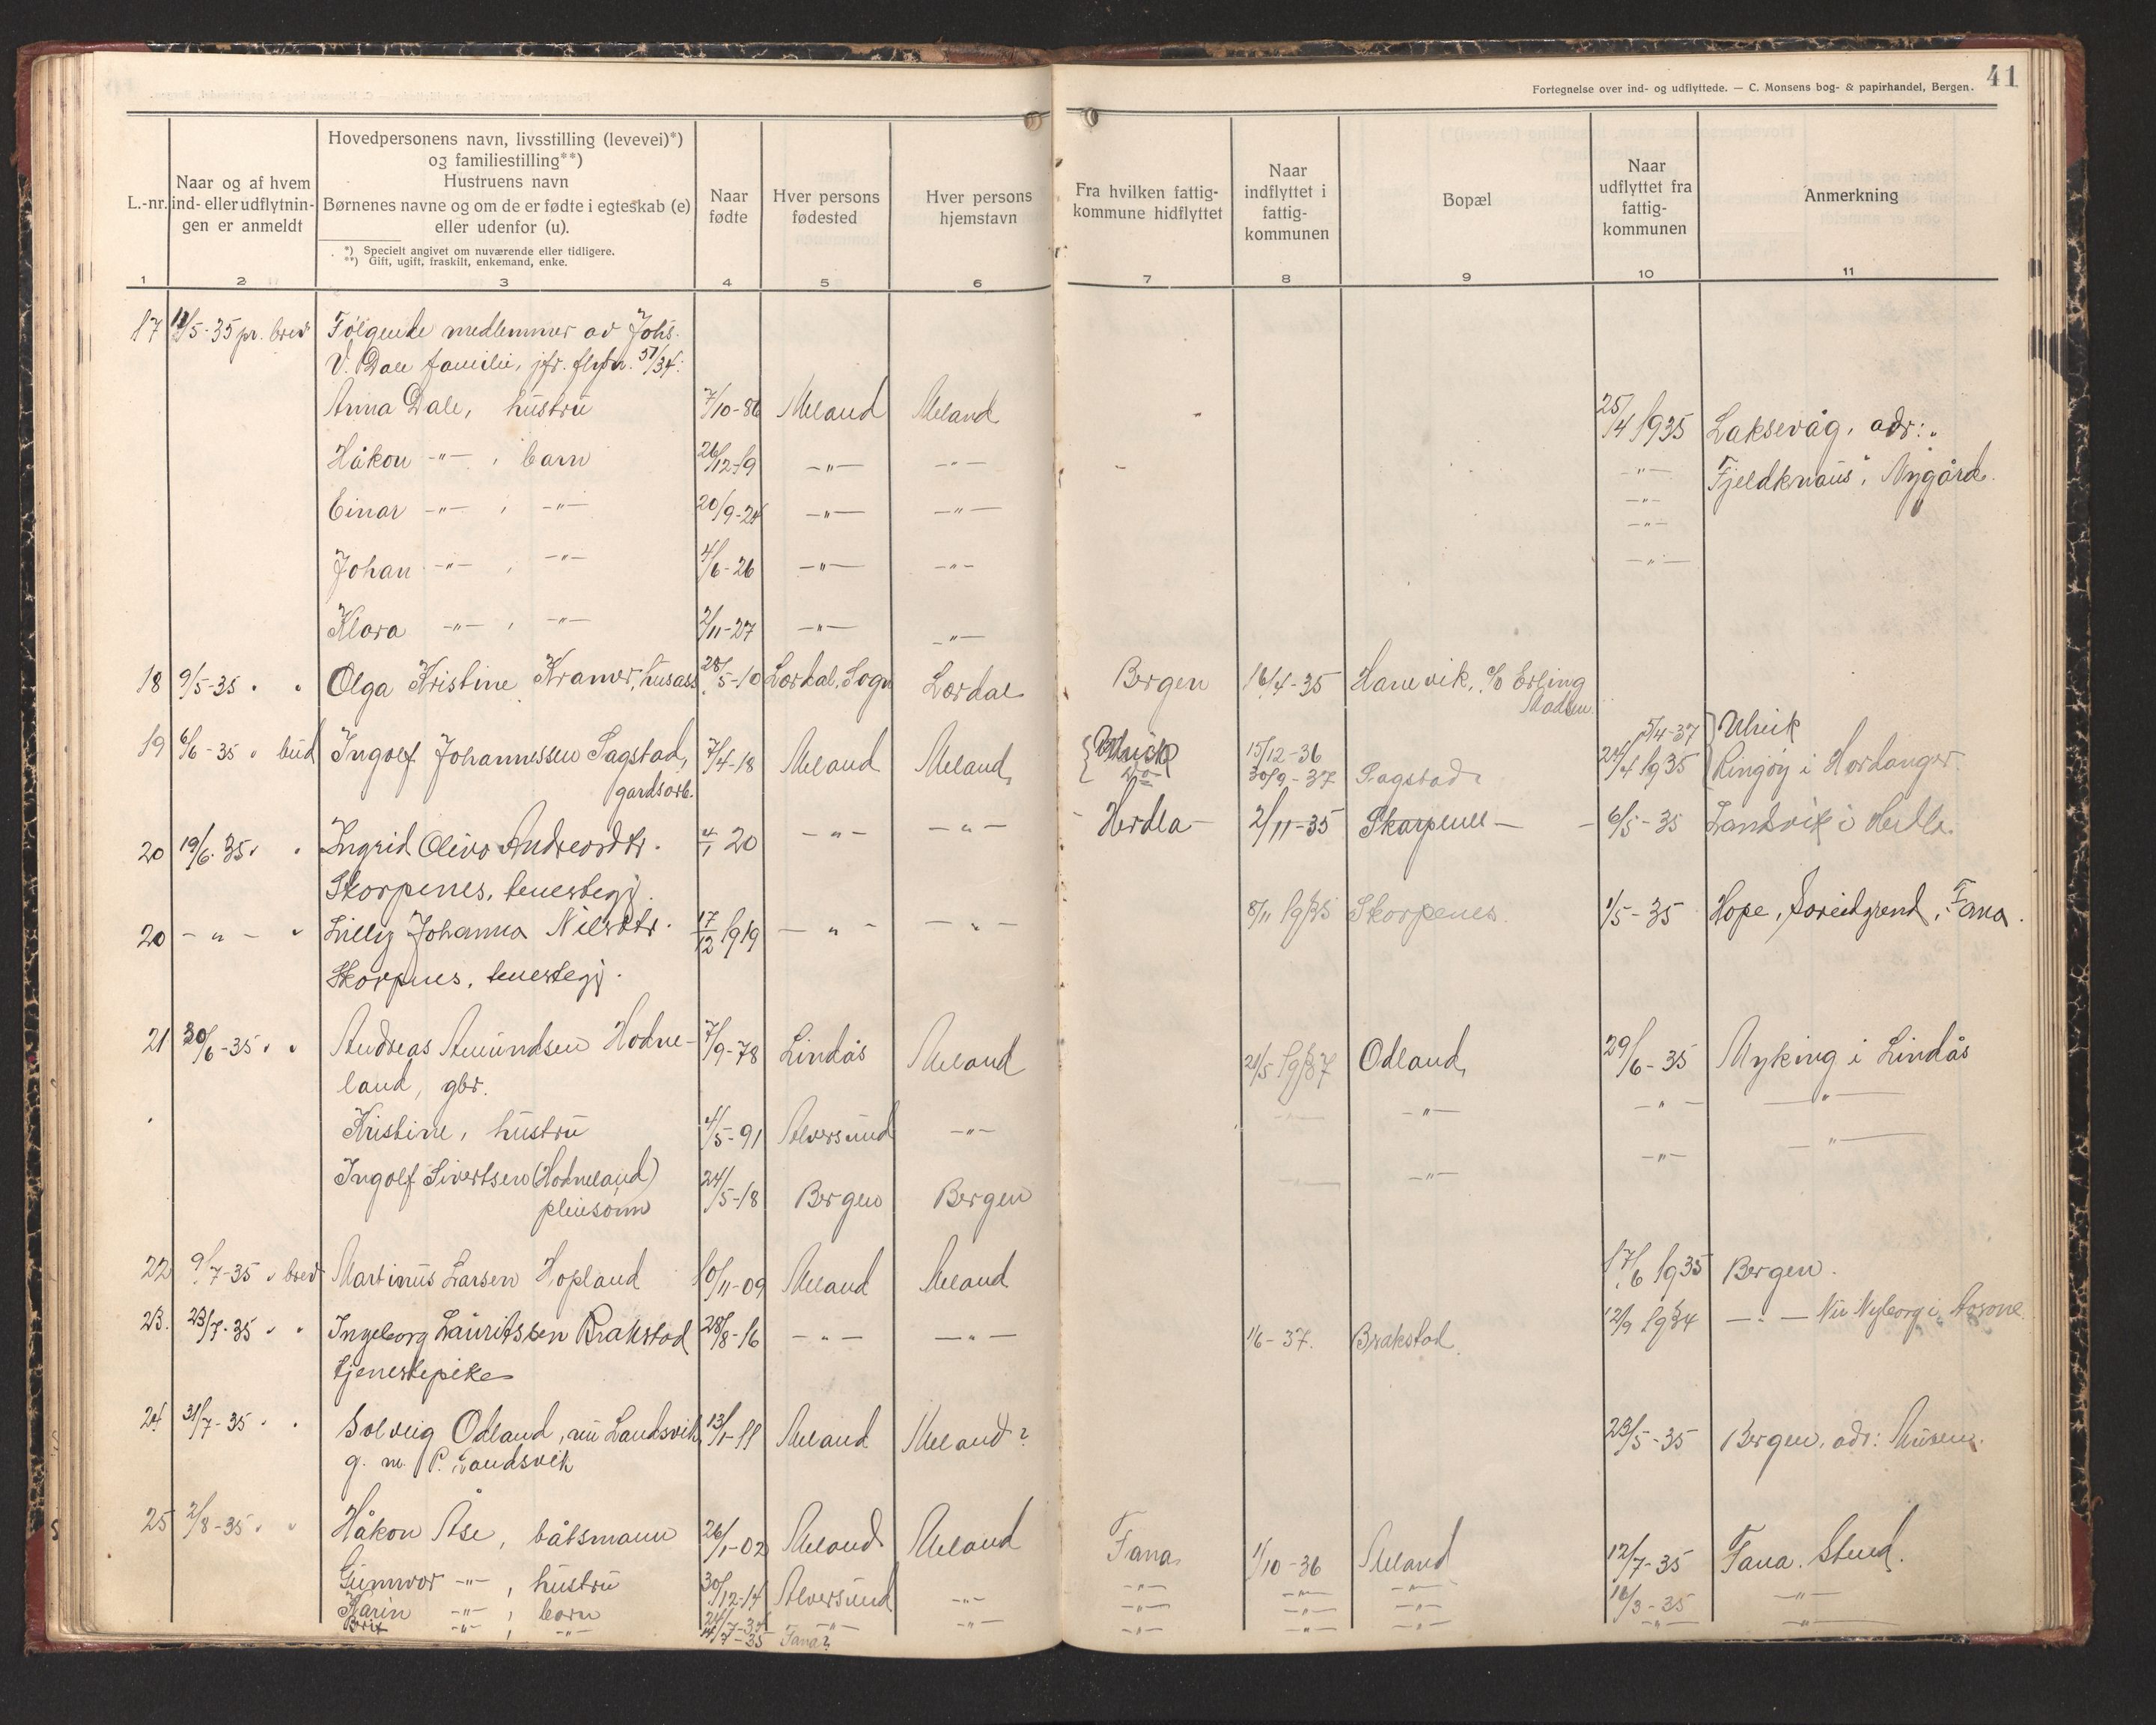 41
Fortegnelse over ind- og udflyttede. — C. Monsens bog- & papirhandel, Bergen.
L.-nr.
Naar og af hvem ind- eller udflytnin- gen er anmeldt
Hovedpersonens navn, livsstilling (levevei)*)
og familiestilling**)
Hustruens navn
Børnenes navne og om de er fødte i egteskab (e)
eller udenfor (u).
*) Specielt angivet om nuværende eller tidligere.
**) Gift, ugift, fraskilt, enkemand, enke.
Naar fødte
Hver persons fødested
Hver persons hjemstavn
Fra hvilken fattig- kommune hidflyttet
Naar indflyttet i fattig- kommunen
Bopæl
Naar udflyttet fra fattig- kommunen
Anmerkning
1 2 3 4 5 6 7 8 9 10 11
17 11/5-35 pr. brev Følgende medlemmer av Johs.
V. Dale familie, jfr. flytn. 51/34:
Anna Dale, hustru 7/10-86 Meland Meland 25/4 1935 Laksevåg, adr: „
Håkon -"- , barn 26/12-19 -"- -"- -"- Fjeldknaus", Nygård.
Einar -"- , -"- 20/9-24 -"- -"- -"-
-"-
Johan -"- , -"- 4/6-26 -"- -"- -"-
Klara -"- , -"- 2/11-27 -"- -"-
18 9/5-35 " " Olga Kristine Kramer, husass. 28/5-10 Lærdal, Sogn Lærdal Bergen 16/4-35 Hanevik, c/o Erling
Madsen.
19 6/6-35 " bud Ingolf Johannessen Sagstad, 7/4-18 Meland Meland Ulvik 15/12-36 5/4-37 Ulvik
gardsarb. Do 30/9-37 Sagstad 24/4 1935 Ringøy i Hardanger.
20 19/6-35 " " Ingrid Olivo Andreasdtr. 4/1 20 -"- -"- Herdla 2/11-35 Skarpenes 6/5-35 Landsvik i Herdla.
Skarpenes, tenestegj.
20 -"- " Lilly Johanna Nilsdtr. 17/12 1919 -"- -"- 8/11 1935 Skarpenes. 1/5-35 Hope, Fana.
Skarpnes, tenestegj.
21 30/6-35 " " Andreas Amundsen Hodne- 7/9-78 Lindås Meland 21/5 1937 Odland, 29/6-35 Myking i Lindås
land, gbr. -"- -"- -"-
Kristine, hustru 4/5-91 Alversund -"- -"- -"-
Ingolf Sivertsen (Hodneland) 24/5-18 Bergen Bergen -"-
pleiesønn
22 9/7-35 " brev Martinus Larsen Hopland 10/11-09 Meland Meland 17/6 1935 Bergen.
23. 23/7-35 " " Ingeborg Lauritssen Brakstad 28/8-16 -"- -"- 1/6-37. Brakstad. 12/9 1934 -"- Nu Nyborg i Åsane.
tjenestepike
24 31/7-35 " " Solveig Odland, nu Landsvik, 13/1-11 Meland Meland? 23/5-35 Bergen, adr:
g. m. P. Landsvik
25 2/8-35 " " Håkon Åse, båtsmann 26/1-02 Meland Meland Fana 1/10-36 Meland 12/7-35 Fana. Stend.
Gunnvor -"- , hustru 30/12-14 Alversund -"- -"- -"- -"- 16/3-35 -"-
Karin -"- , born 24/7-34 -"- -"- -"- -"- -"- -"- -"-
Berit -"- , -"- 14/7-35 Fana? -"- -"- -"-